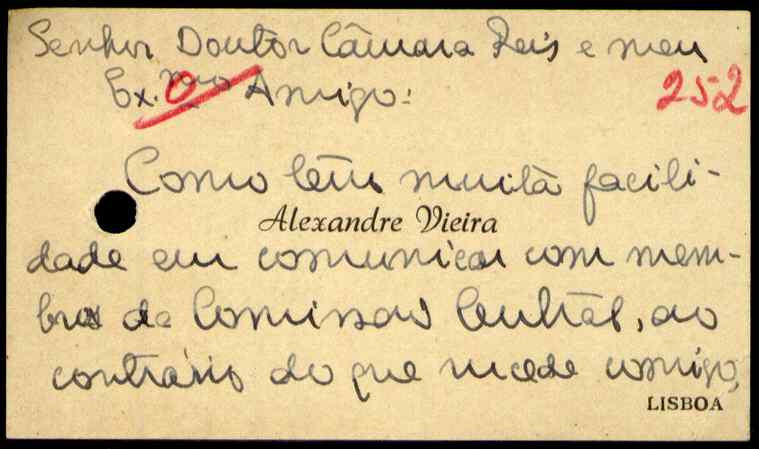 Senhor Doutor Câmara Reis e meu
Ex.mo Amigo:
252
Como tem muita facili-
Alexandre Vieira
dade em comunicar com mem-
bros da Comissão Central, ao
contrário do que sucede comigo,
LISBOA